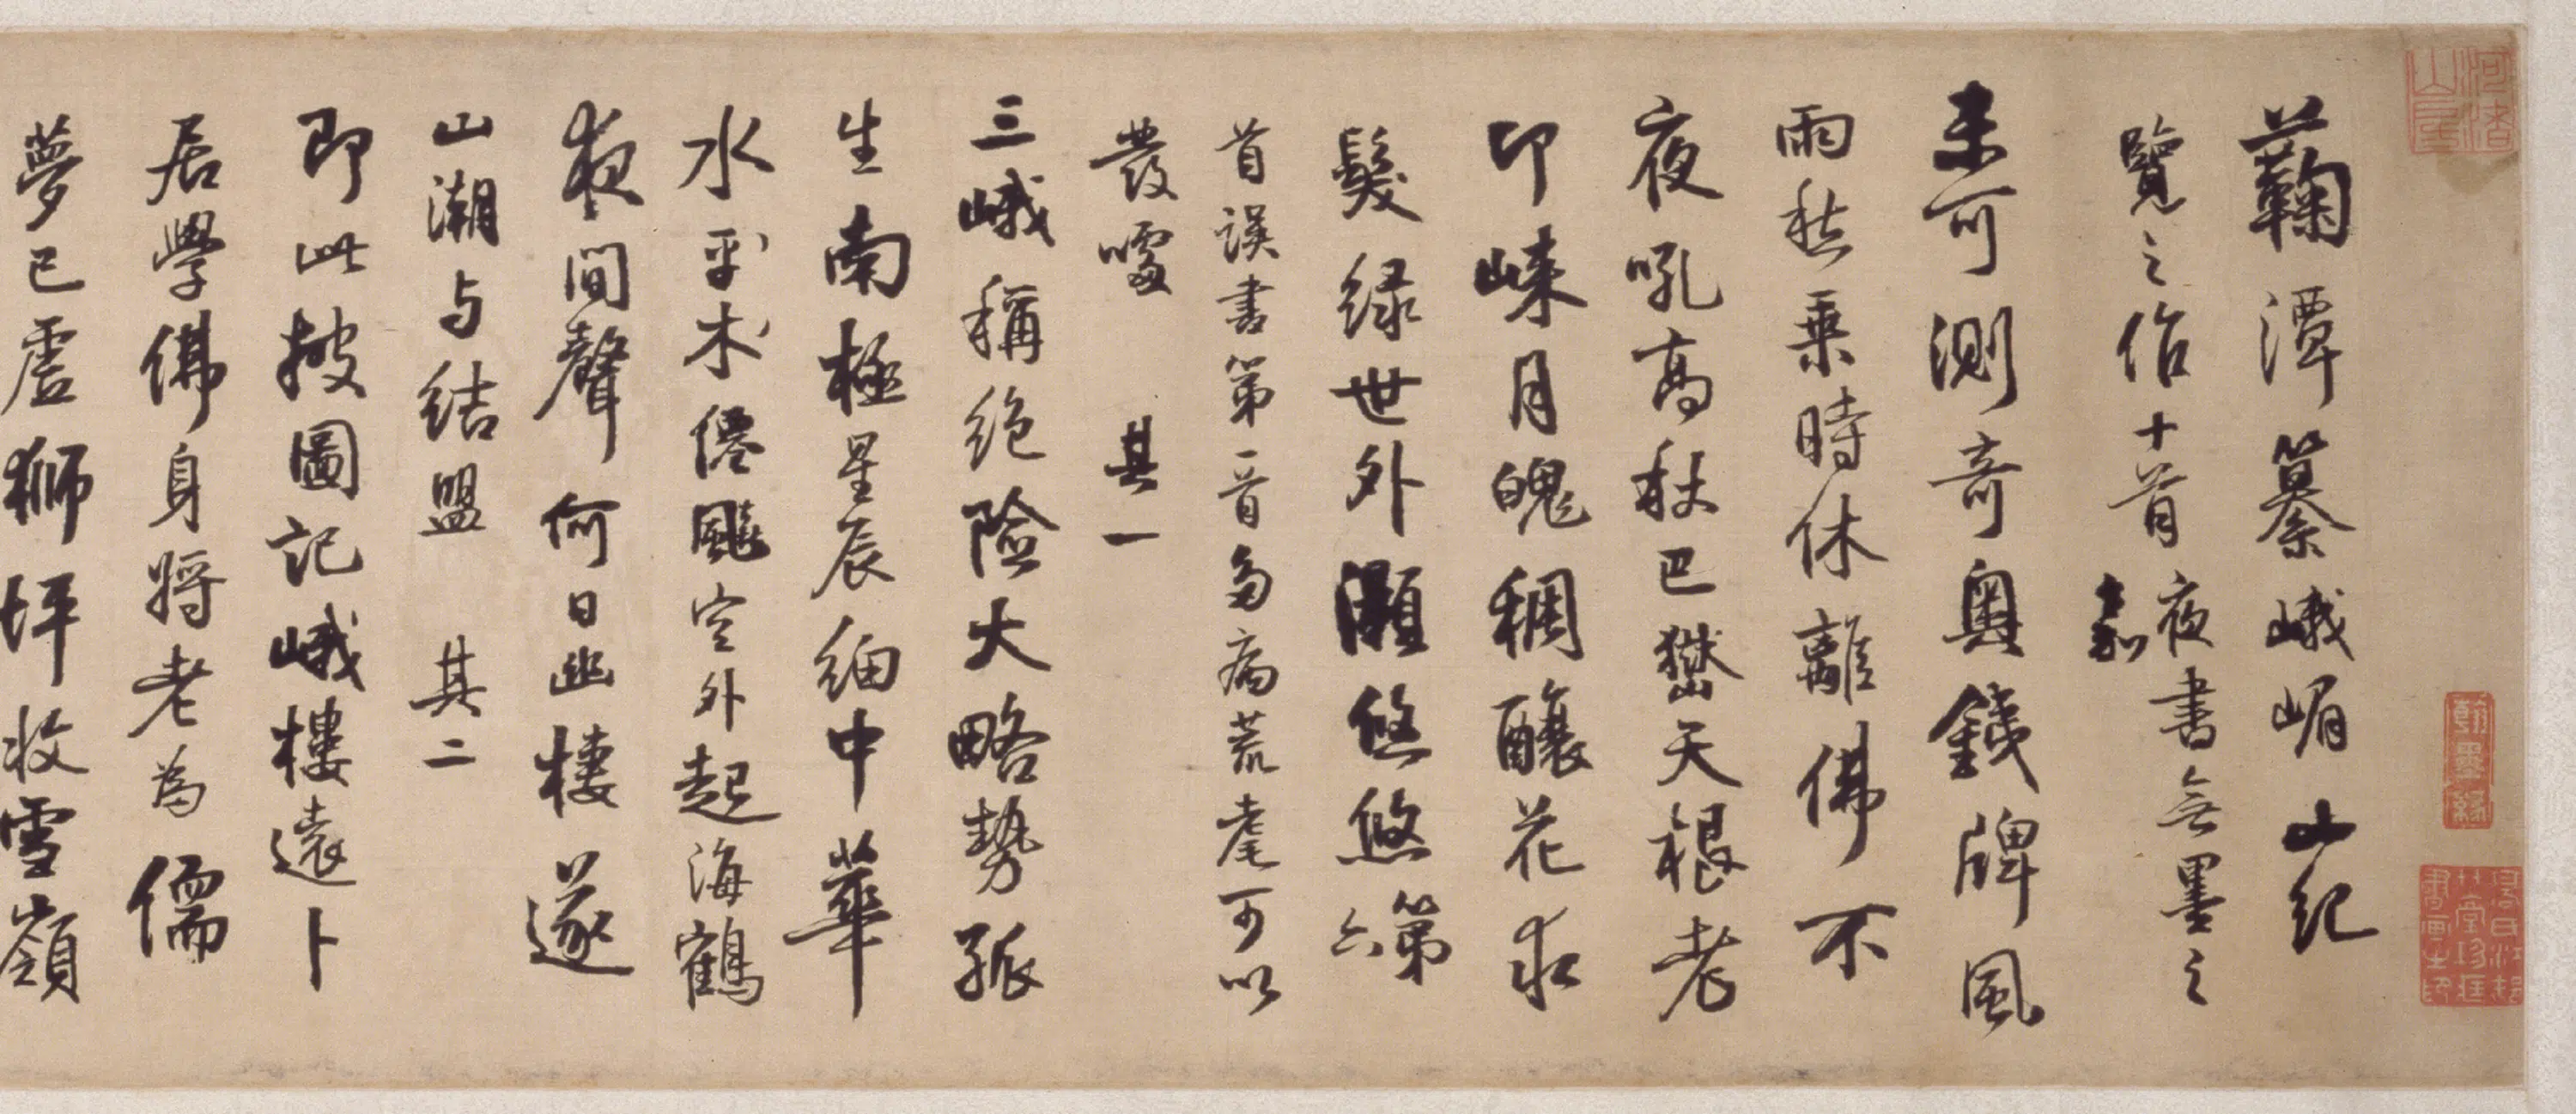 鞠潭纂峨嵋山紀
覽之作十首夜書無墨之
未可測奇奧錢牌風
雨愁乘時休離佛不
夜吼高秋巴嶽天根老
卬崍月魄稠釀花求
髮綠世外灝悠悠第六
首誤書第一首多病荒耄可以
發噱 其一
三峨稱絕險大略勢孤
生南極星辰細中華
水平木僊颷空外起海鶴
夜間聲何日幽棲遂
山潮与結盟 其二
即此披圖記峨樓遠卜
居學佛身將老為儒
夢已虛獅坪收雪嶺
翰墨緣